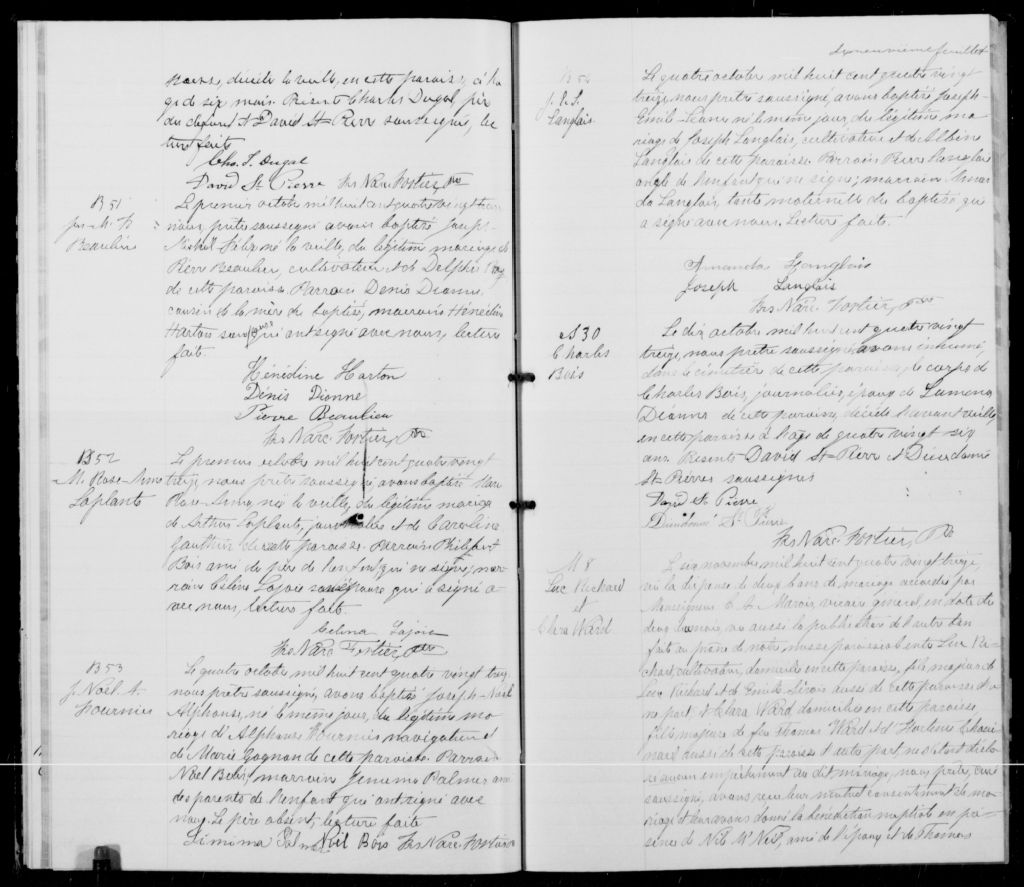 décédé la veille, en cette paroisse, à l'â-
ge de six mois. Présents Charles Dugal, père
du défunt et David St-Pierre soussigné, lec-
ture faite
Chs. T. Dugal
David St Pierre Frs Narc. Fortier, Ptre
B 51
Jos-M. F.
Beaulieu
Le premier octobre mil huit cent quatre vingt treize
nous, prêtre soussigné avons baptisé Joseph-
Michel-Félix, né la veille, du légitime mariage de
Pierre Beaulieu, cultivateur et de Delphis Roy
de cette paroisse. Parrain Denis Dionne
cousin de la mère du baptisé, marraine Hénédine
Harton qui ont signé avec nous, lecture
faite.
Hénédine Harton
Dénis Dionne
Pierre Beaulieu
Frs Narc. Fortier, Ptre
B 52
M. Rose-Anna
Laplante
Le premier octobre mil huit cent quatre vingt
treize, nous prêtre soussigné, avons baptisé Marie
Rose-Anna, née la veille, du légitime mariage
de Arthur Laplante, journalier et de Caroline
Gauthier de cette paroisse. Parrain Philibert
Bois ami du père de l'enfant, qui ne signe, mar-
raine Célina Lajoie son épouse qui a signé a-
vec nous, lecture faite.
Celina Lajoie
Frs Narc Fortier, Ptre
B 53
J. Noël A.
Fournier
Le quatre octobre mil huit cent quatre vingt treize
nous prêtre soussigné, avons baptisé Joseph-Noël
Alphonse, né le même jour, du légitime ma-
riage de Alphonse Fournier navigateur et
de Marie Gagnon de cette paroisse. Parrain
Noël Bois, marraine Jemima Palmer amis
des parents de l'enfant qui ont signé avec
nous. Le père absent, lecture faite
Jimima Palmer Noël Bois Frs Narc. Fortier
dixneuvième feuillet
B 54
J. E. L.
Langlais
Le quatre octobre mil huit cent quatre vingt
treize, nous prêtre soussigné, avons baptisé Joseph-
Emile- né le même jour, du légitime ma-
riage de Joseph Langlais, cultivateur et de Albina
Langlais de cette paroisse. Parrain Pierre Langlais
oncle de l'enfant qui ne signe; marraine Aman-
da Langlais, tante maternelle du baptisé qui
a signé avec nous. Lecture faite.
Amanda Langlais
Joseph Langlais
Frs Narc. Fortier, Ptre
S 30
Charles
Bois
Le dix octobre mil huit cent quatre vingt
treize, nous prêtre soussigné, avons inhumé,
dans le cimetière de cette paroisse, le corps de
Charles Bois, journalier, époux de Lumena
Dionne de cette paroisse, décédé l'avant veille,
en cette paroisse à l'âge de quatre vingt six
ans. Présents David St-Pierre et Dieudonné
St-Pierre soussignés
David St Pierre
Dieudonné St Pierre
Frs Narc. Fortier, Ptre
M 8
Luc Richard
et
Clara Ward
Le six novembre mil huit cent quatre vingt et treize,
vu la dispense de deux bans de mariage accordée par
Monseigneur C. A. Marois, vicaire général, en date du
deux du mois, vu aussi la publication de l'autre ban
fait au prône de notre messe paroissiale entre Luc Ri-
chard, cultivateur, domicilié en cette paroisse, fils majeur de
Luc Richard et de Emilie Sirois aussi de cette paroisse d'u-
ne part; et Clara Ward domiciliée en cette paroisse,
fille majeure de feu Thomas Ward et de
aussi de cette paroisse d'autre part, ne s'étant déclo-
ré aucun empêchement au dit mariage, nous prêtre, curé
soussigné, avons reçu leur mutuel consentement de ma-
riage et leur avons donné la bénédiction nuptiale en pré-
sence de Neil McNeil, ami de l'époux et de Thomas